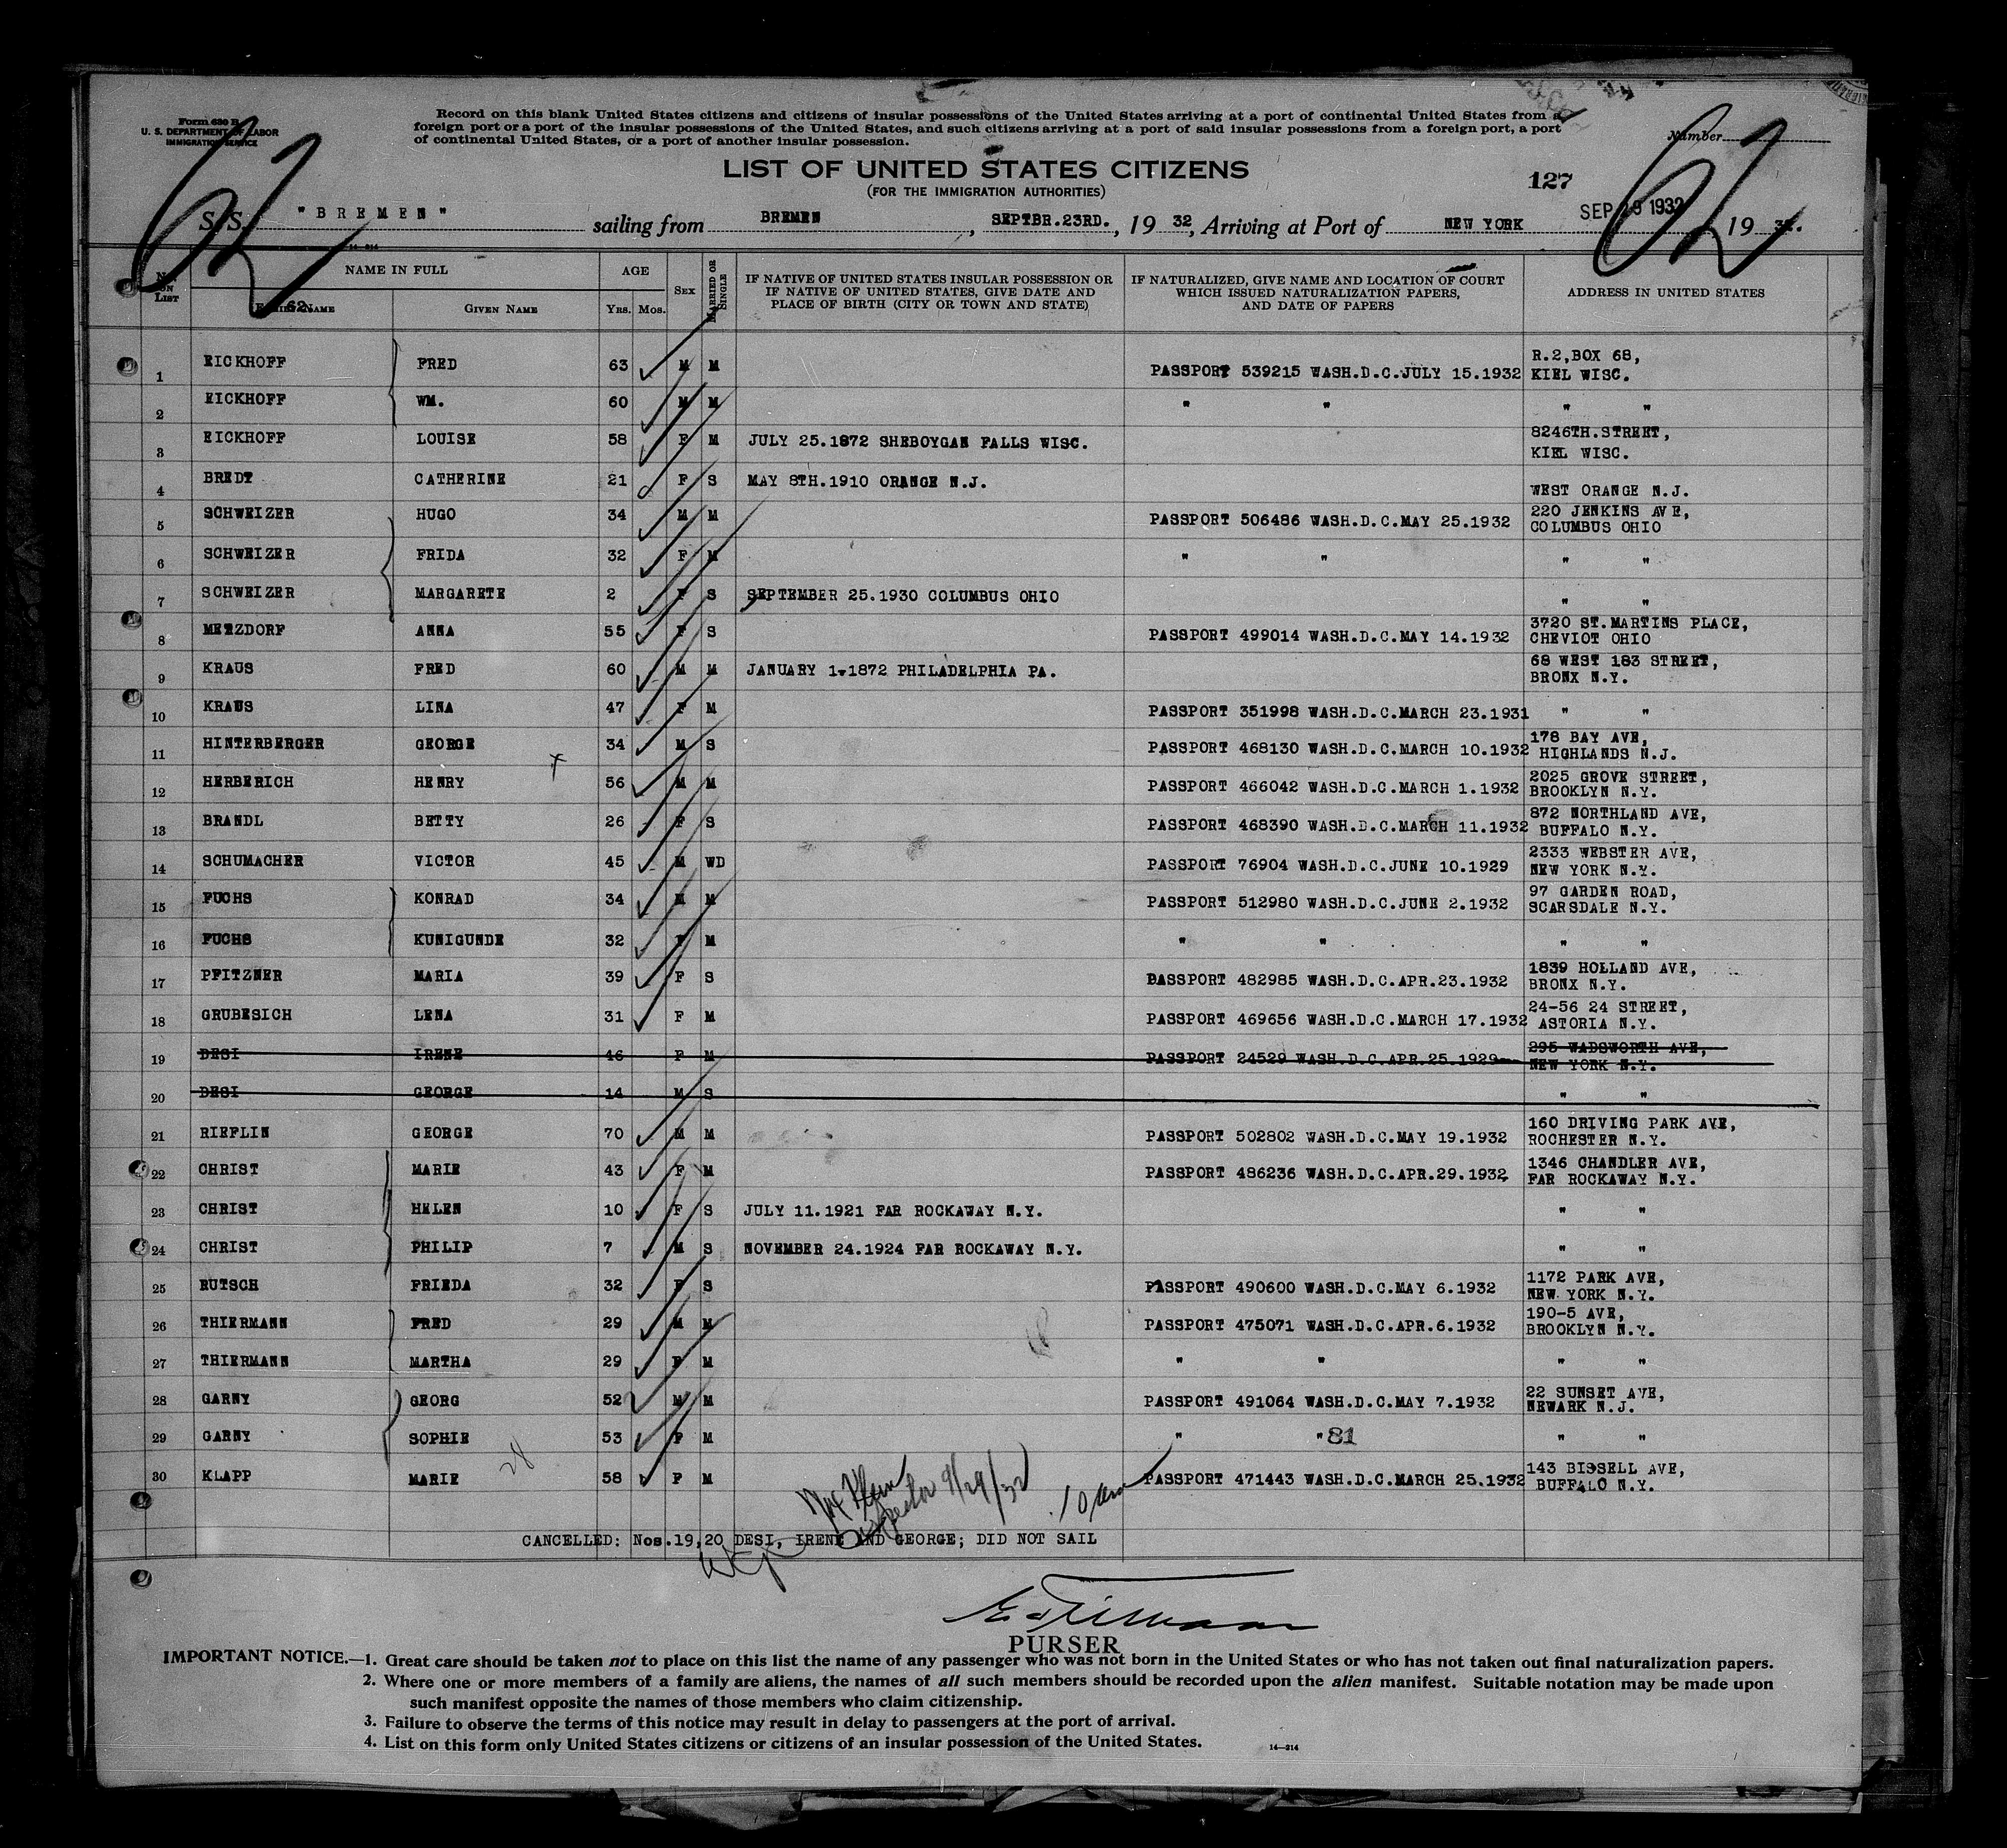 Form 630 B
U. S. DEPARTMENT OF LABOR
IMMIGRATION SERVICE
Record on this blank United States citizens and citizens of insular possessions of the United States arriving at a port of continental United States from a
foreign port or a port of the insular possessions of the United States, and such citizens arriving at a port of said insular possessions from a foreign port, a port
of continental United States, or a port of another insular possession.
Number
62 62
LIST OF UNITED STATES CITIZENS
(FOR THE IMMIGRATION AUTHORITIES)
127
S. S. "BREMEN" sailing from BREMEN, SEPTBR.23RD., 19 32, Arriving at Port of NEW YORK SEP 1932 19 32.
14—214
No. ON LIST NAME IN FULL AGE SEX MARRIED OR SINGLE IF NATIVE OF UNITED STATES INSULAR POSSESSION OR IF NATIVE OF UNITED STATES, GIVE DATE AND PLACE OF BIRTH (CITY OR TOWN AND STATE) IF NATURALIZED, GIVE NAME AND LOCATION OF COURT WHICH ISSUED NATURALIZATION PAPERS, AND DATE OF PAPERS ADDRESS IN UNITED STATES
FAMILY NAME 62. GIVEN NAME YRS. MOS.
1 EICKHOFF FRED 63 M M PASSPORT 539215 WASH.D.C.JULY 15.1932 R.2,BOX 68, KIEL WISC.
2 EICKHOFF WM. 60 M M " " " "
3 EICKHOFF LOUISE 58 F M JULY 25.1872 SHEBOYGAN FALLS WISC. 8246TH.STREET, KIEL WISC.
4 BREDT CATHERINE 21 F S MAY 8TH.1910 ORANGE N.J. WEST ORANGE N.J.
5 SCHWEIZER HUGO 34 M M PASSPORT 506486 WASH.D.C.MAY 25.1932 220 JENKINS AVE, COLUMBUS OHIO
6 SCHWEIZER FRIDA 32 F M " " " "
7 SCHWEIZER MARGARETE 2 F S SEPTEMBER 25.1930 COLUMBUS OHIO " "
8 METZDORF ANNA 55 F S PASSPORT 499014 WASH.D.C.MAY 14.1932 3720 ST.MARTINS PLACE, CHEVIOT OHIO
9 KRAUS FRED 60 M M JANUARY 1.1872 PHILADELPHIA PA. 68 WEST 183 STREET, BRONX N.Y.
10 KRAUS LINA 47 F M PASSPORT 351998 WASH.D.C.MARCH 23.1931 " "
11 HINTERBERGER GEORGE 34 M S PASSPORT 468130 WASH.D.C.MARCH 10.1932 178 BAY AVE, HIGHLANDS N.J.
12 HERBERICH HENRY 56 M M PASSPORT 466042 WASH.D.C.MARCH 1.1932 2025 GROVE STREET, BROOKLYN N.Y.
13 BRANDL BETTY 26 F S PASSPORT 468390 WASH.D.C.MARCH 11.1932 872 NORTHLAND AVE, BUFFALO N.Y.
14 SCHUMACHER VICTOR 45 M WD PASSPORT 76904 WASH.D.C.JUNE 10.1929 2333 WEBSTER AVE, NEW YORK N.Y.
15 FUCHS KONRAD 34 M M PASSPORT 512980 WASH.D.C.JUNE 2.1932 97 GARDEN ROAD, SCARSDALE N.Y.
16 FUCHS KUNIGUNDE 32 F M " " " "
17 PFITZNER MARIA 39 F S PASSPORT 482985 WASH.D.C.APR.23.1932 1839 HOLLAND AVE, BRONX N.Y.
18 GRUBESICH LENA 31 F M PASSPORT 469656 WASH.D.C.MARCH 17.1932 24-56 24 STREET, ASTORIA N.Y.
19 DESI IRENE 46 F M PASSPORT 24529 WASH.D.C.APR.25.1929 295 WADSWORTH AVE, NEW YORK N.Y.
20 DESI GEORGE 14 M S " "
21 RIEFLIN GEORGE 70 M M PASSPORT 502802 WASH.D.C.MAY 19.1932 160 DRIVING PARK AVE, ROCHESTER N.Y.
22 CHRIST MARIE 43 F M PASSPORT 486236 WASH.D.C.APR.29.1932 1346 CHANDLER AVE, FAR ROCKAWAY N.Y.
23 CHRIST HELEN 10 F S JULY 11.1921 FAR ROCKAWAY N.Y. " "
24 CHRIST PHILIP 7 M S NOVEMBER 24.1924 FAR ROCKAWAY N.Y. " "
25 RUTSCH FRIEDA 32 F S PASSPORT 490600 WASH.D.C.MAY 6.1932 1172 PARK AVE, NEW YORK N.Y.
26 THIERMANN FRED 29 M M PASSPORT 475071 WASH.D.C.APR.6.1932 190-5 AVE, BROOKLYN N.Y.
27 THIERMANN MARTHA 29 F M " " " "
28 GARNY GEORG 52 M M PASSPORT 491064 WASH.D.C.MAY 7.1932 22 SUNSET AVE, NEWARK N.J.
29 GARNY SOPHIE 53 F M " " 81 " "
30 KLAPP MARIE 28 58 F M PASSPORT 471443 WASH.D.C.MARCH 25.1932 143 BISSELL AVE, BUFFALO N.Y.
Inspector 9/29/32
CANCELLED: Nos.19,20 DESI, IRENE AND GEORGE; DID NOT SAIL
PURSER
IMPORTANT NOTICE.—1. Great care should be taken not to place on this list the name of any passenger who was not born in the United States or who has not taken out final naturalization papers.
2. Where one or more members of a family are aliens, the names of all such members should be recorded upon the alien manifest. Suitable notation may be made upon
such manifest opposite the names of those members who claim citizenship.
3. Failure to observe the terms of this notice may result in delay to passengers at the port of arrival.
4. List on this form only United States citizens or citizens of an insular possession of the United States.
14—214